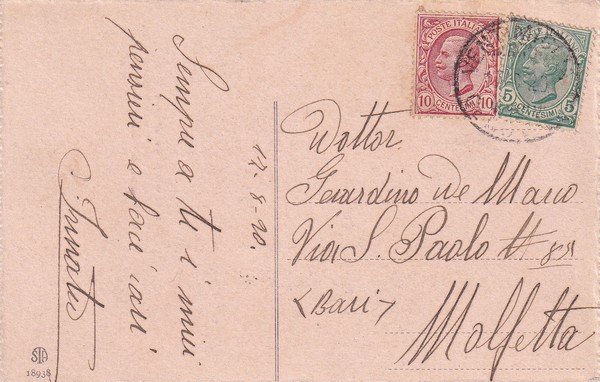 Sempre a te i miei
pensieri e baci cari
17-8-20.
POSTE ITALIANE
10 CENTESIMI 10
5 CENTESIMI 5
Dottor
Gerardino de Marco
Via S. Paolo
<Bari>
Molfetta
STA
18938